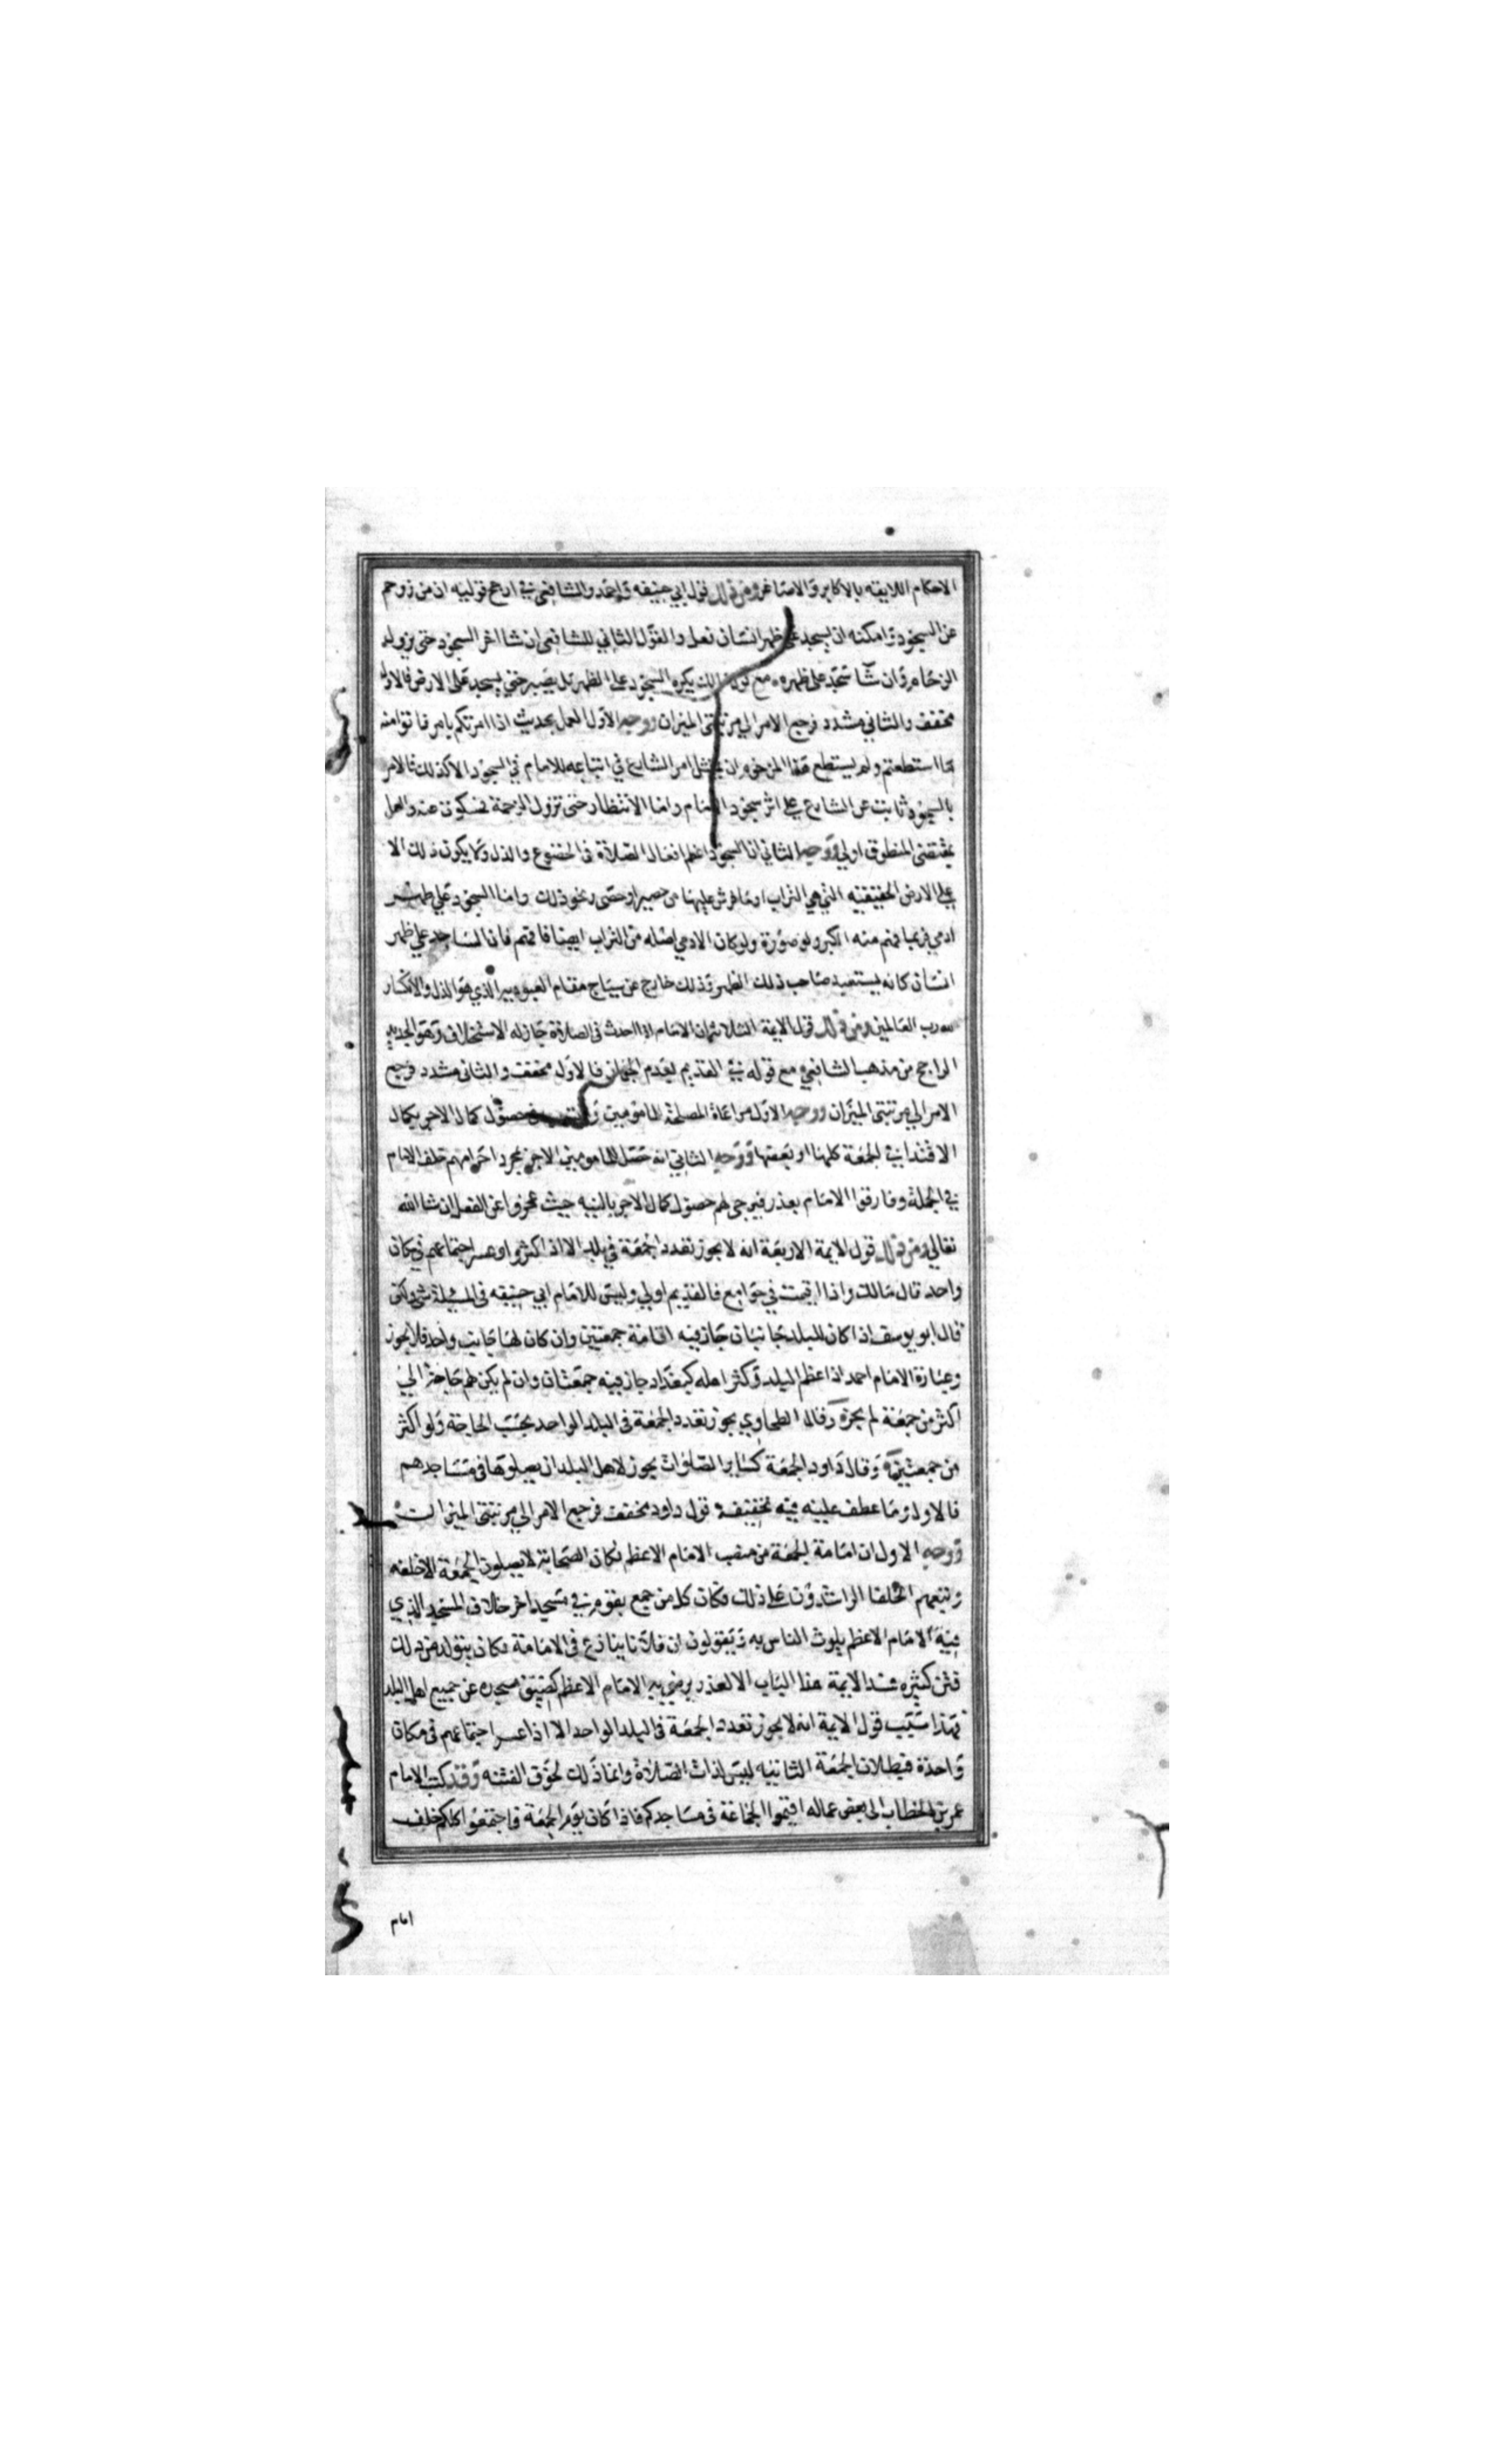 الاحكام اللايقه بالاكابر والاصاغر ومن ذلك قول ابي حنيفه واحمد والشافعي في ارجح قوليه ان من زوحم
عن السجود وامكنه ان يسجد على ظهر انسان فعل والقول الثاني للشافعي ان شا اخر السجود حتى يزول
الزحام وان شا سجد على ظهره مع قول مالك يكره السجود على الظهر بل يصبر حتى يسجد على الارض فالاول
مخفف والثاني مشدد فرجع الامر الي مرتبتي الميزان ووجه الاول العمل بحديث اذا امرتكم بامر فاتوا منه
ما استطعتم ولم يستطع هذا المزحوم ان يمتثل امر الشارع في اتباعه للامام في السجود الا كذلك فالامر
بالسجود ثابت عن الشارع على اثر سجود الامام واما الانتظار حتى تزول الزحمة فمسكوت عنه والعمل
بمقتضى المنطوق اولى ووجه الثاني ان السجود اعظم افعال الصلاة في الخضوع والذل ولا يكون ذلك الا
على الارض الحقيقيه التي هي التراب او ما فرش عليها من حصير او حصى ونحو ذلك واما السجود على ظهر
ادمي فربما فهم منه الكبر ولو صورة ولو كان الادمي اصله من التراب ايضا فافهم فان الساجد على ظهر
انسان كانه يستعبد صاحب ذلك الظهر وذلك خارج عن سياج مقام العبوديه الذي هو الذل والانكسار
لله رب العالمين ومن ذلك قول الايمة الثلاثة ان الامام اذا احدث في الصلاة جاز له الاستخلاف وهو الجديد
الراجح من مذهب الشافعي مع قوله في القديم بعدم الجواز فالاول مخفف والثاني مشدد فرجع
الامر الي مرتبتي الميزان ووجه الاول مراعاة المصلحة للمامومين حصول كمال الاجر بكمال
الاقتدا في الجمعة كلها او بعضها ووجه الثاني انه حصل للمامومين الاجر بمجرد احرامهم خلف الامام
في الجملة وفارقوا الامام بعذر فيرجى لهم حصول كمال الاجر بالنيه حيث عجزوا عن الفعل ان شا الله
تعالى ومن ذلك قول الايمة الاربعة انه لا يجوز تعدد الجمعة في بلد الا اذا كثروا وعسر اجتماعهم في مكان
واحد قال مالك واذا اقيمت في جوامع فالقديم اولى وليس للامام ابي حنيفه في المسئلة شي ولكن
قال ابو يوسف اذا كان للبلد جانبان جاز فيه اقامة جمعتين وان كان لها جانب واحد فلا يجوز
وعبارة الامام احمد اذا عظم البلد وكثر اهله كبغداد جاز فيه جمعتان وان لم يكن لهم حاجة الى
اكثر من جمعة لم يجز وقال الطحاوي يجوز تعدد الجمعة في البلد الواحد بحسب الحاجة ولو اكثر
من جمعتين وقال داود الجمعة كساير الصلوات يجوز لاهل البلد ان يصلوها في مساجدهم
فالاول وما عطف عليه فيه تخفيف وقول داود مخفف فرجع الامر الي مرتبتي الميزان
ووجه الاول ان امامة الجمعة من منصب الامام الاعظم فكان الصحابة لا يصلون الجمعة الا خلفه
وتبعهم الخلفا الراشدون على ذلك فكان كل من جمع بقوم في مسجد اخر خلاف المسجد الذي
فيه الامام الاعظم يلوث الناس به ويقولون ان فلانا ينازع في الامامة فكان يتولد من ذلك
فتن كثيره فسد الايمة هذا الباب الا لعذر يرضى به الامام الاعظم كضيق مسجده عن جميع اهل البلد
فهذا سبب قول الايمة انه لا يجوز تعدد الجمعة في البلد الواحد الا اذا عسر اجتماعهم في مكان
واحد فبطلان الجمعة الثانيه ليس لذات الصلاة وانما ذلك لخوف الفتنه وقد كتب الامام
عمر بن الخطاب الى بعض عماله اقيموا الجماعة في مساجدكم فاذا كان يوم الجمعة فاجتمعوا كلكم خلف
امام